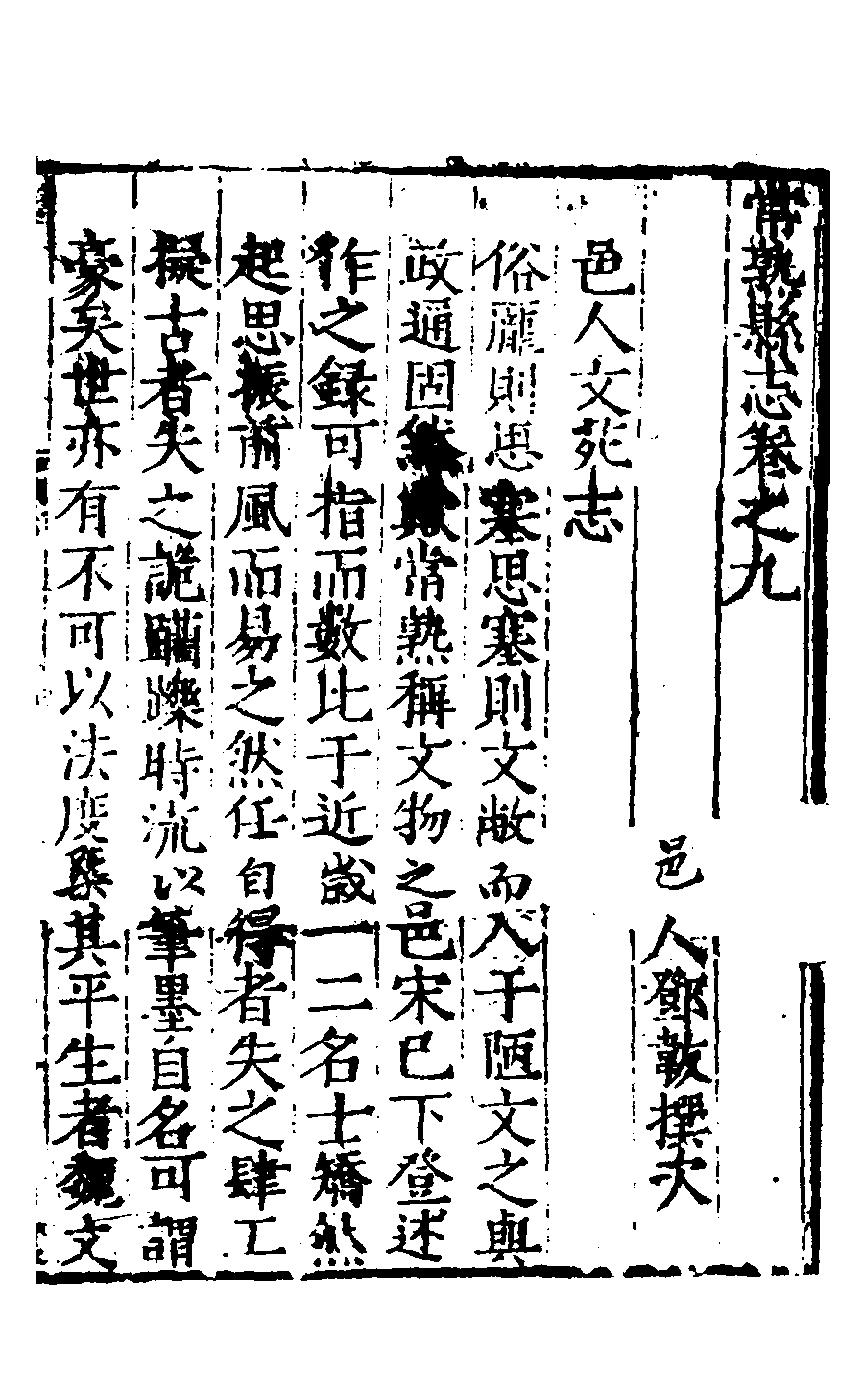 常熟縣志卷之九
邑人鄧韍撰次
邑人文苑志
俗龐則思塞思塞則文敝而入于陋文之與
政通固然歟常熟稱文物之邑宋巳下登述
作之録可指而數比于近歲一二名士矯然
起思振前風而易之然任自得者失之肆工
擬古者失之詭躪躒時流以筆墨自名可謂
豪矣世亦有不可以法度槩其平生者魏文